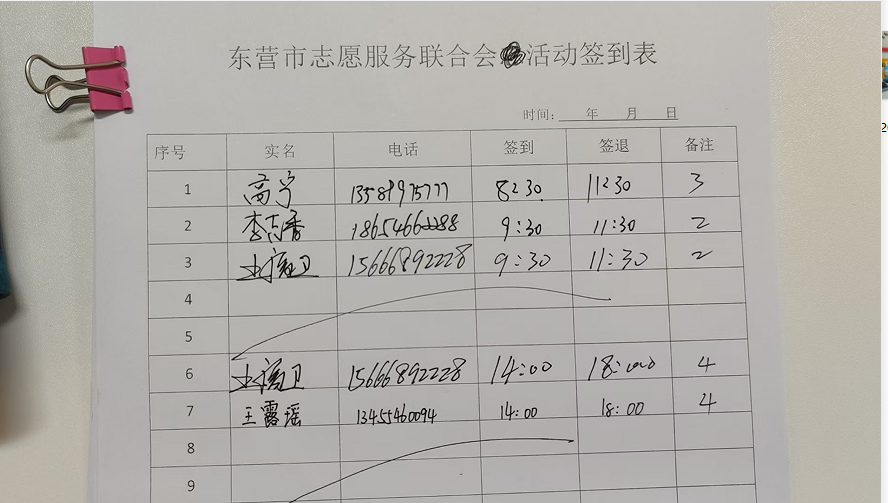 东营市志愿服务联合会 活动签到表
时间: 年 月 日
序号 实名 电话 签到 签退 备注
1 高宁 13589975777 8:30 11:30 3
2 李志香 18654662288 9:30 11:30 2
3 15666892228 9:30 11:30 2
4
5
6 15666892228 14:00 18:00 4
7 王露瑶 13455460094 14:00 18:00 4
8
9